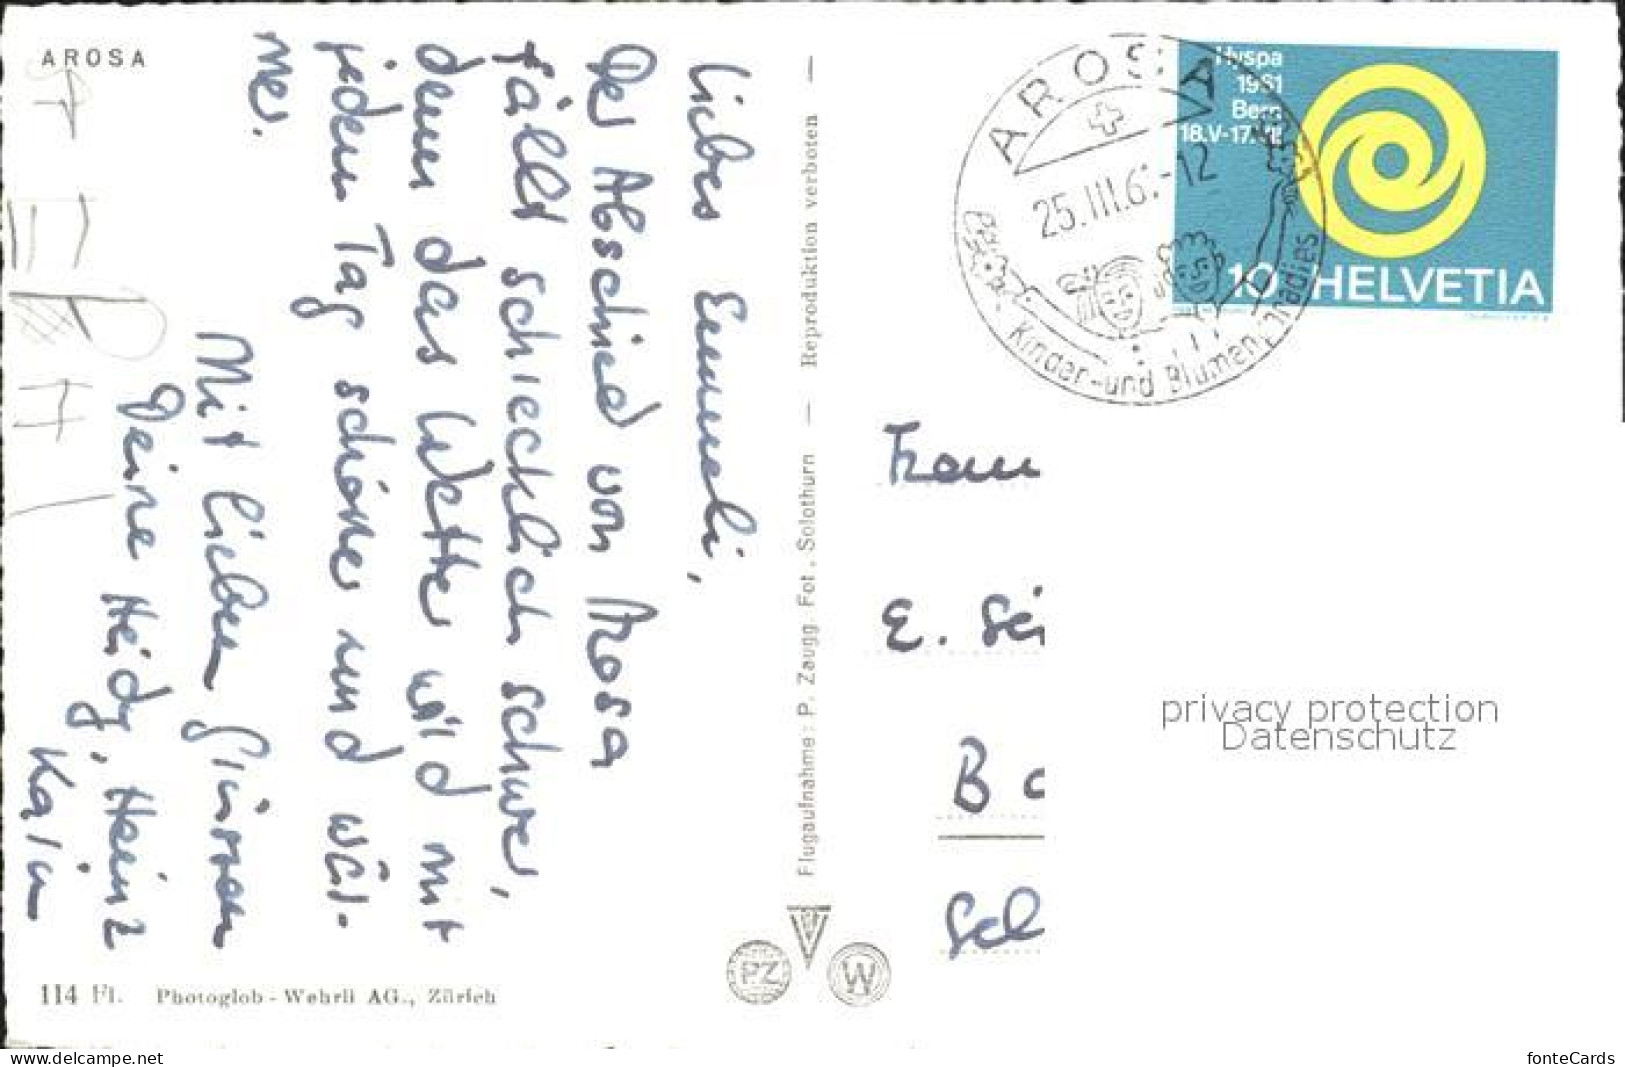 AROSA
Liebes Emmeli,
Der Abschied von Arosa
fällt schrecklich schwer,
denn das Wetter wird mit
jedem Tag schöner und wär-
mer.
Mit lieben Grüssen
Deine Heidy, Heinz
Karin
114 Fl. Photoglob-Wehrli AG., Zürich
Flugaufnahme: P. Zaugg Fot. Solothurn — Reproduktion verboten —
PZ W
AROSA
25.III.6 -12
Kinder-und Blumenparadies
Hyspa
1961
Bern
18.V-17.VII
10 HELVETIA
Frau
E. Sei
B
Sch
privacy protection
Datenschutz
www.delcampe.net
fonteCards